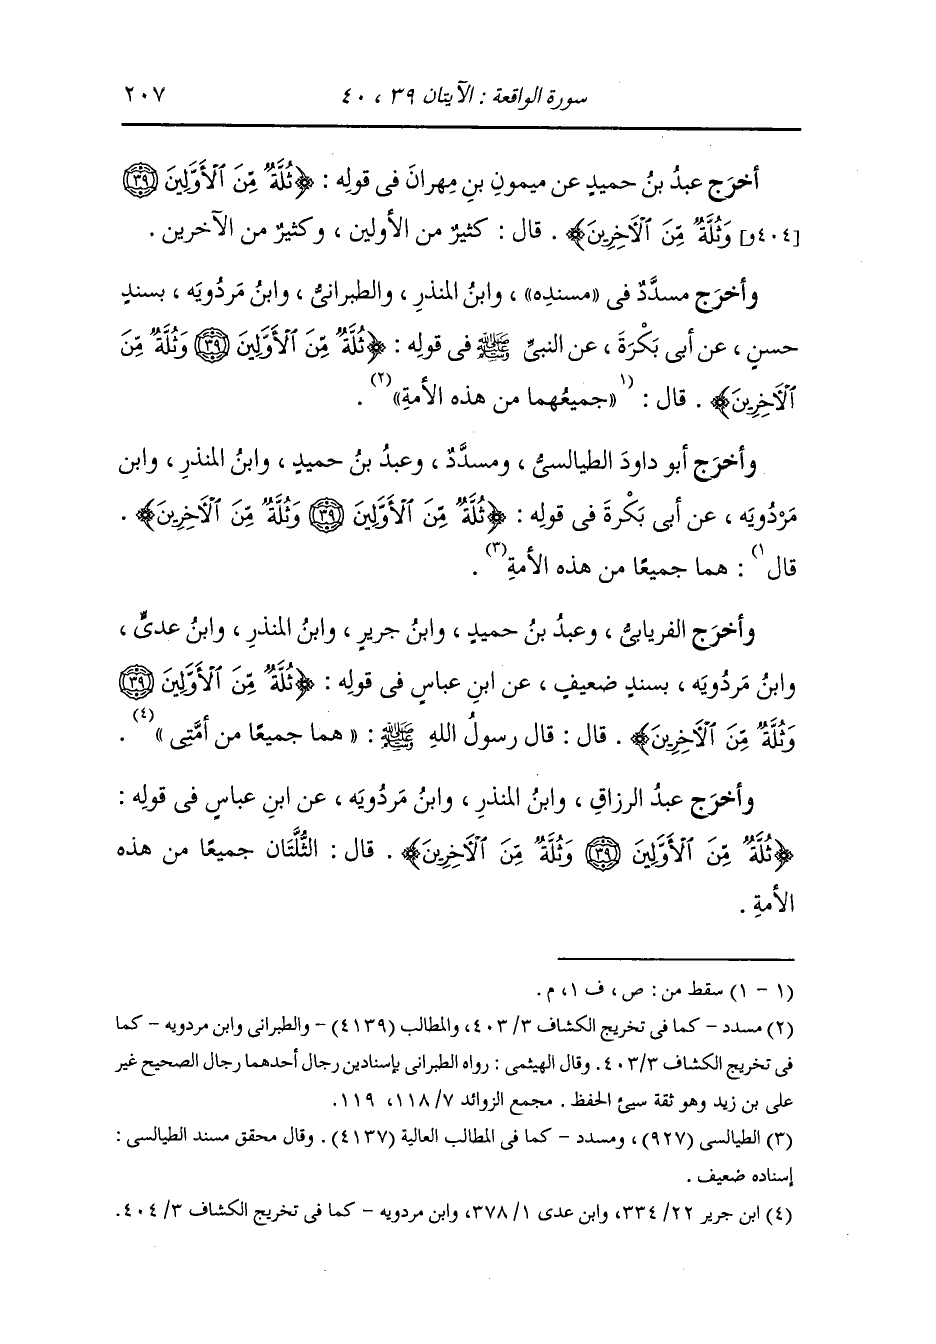 سورة الواقعة : الآيتان ٣٩ ، ٤٠ ٢٠٧
أخرَج عبدُ بنُ حميدٍ عن ميمونِ بنِ مِهرانَ فى قولِه : ﴿ثُلَّةٌ مِّنَ ٱلْأَوَّلِينَ ٣٩
[٤٠٤و] وَثُلَّةٌ مِّنَ ٱلْآخِرِينَ﴾ . قال : كثيرٌ من الأولين ، وكثيرٌ من الآخرين .
وأخرَج مسدَّدٌ فى «مسندِه» ، وابنُ المنذرِ ، والطبرانىُّ ، وابنُ مَردُويَه ، بسندٍ
حسنٍ ، عن أبى بَكْرَةَ ، عن النبىِّ ﷺ فى قولِه : ﴿ثُلَّةٌ مِّنَ ٱلْأَوَّلِينَ ٣٩ وَثُلَّةٌ مِّنَ
ٱلْآخِرِينَ﴾ . قال : (١) «جميعُهما من هذه الأمةِ» (٢) .
وأخرَج أبو داودَ الطيالسىُّ ، ومسدَّدٌ ، وعبدُ بنُ حميدٍ ، وابنُ المنذرِ ، وابن
مَرْدُويَه ، عن أبى بَكْرةَ فى قولِه : ﴿ثُلَّةٌ مِّنَ ٱلْأَوَّلِينَ ٣٩ وَثُلَّةٌ مِّنَ ٱلْآخِرِينَ﴾ .
قال (١) : هما جميعًا من هذه الأمةِ (٣) .
وأخرَج الفريابىُّ ، وعبدُ بنُ حميدٍ ، وابنُ جريرٍ ، وابنُ المنذرِ ، وابنُ عدىٍّ ،
وابنُ مَردُويَه ، بسندٍ ضعيفٍ ، عن ابنِ عباسٍ فى قولِه : ﴿ثُلَّةٌ مِّنَ ٱلْأَوَّلِينَ ٣٩
وَثُلَّةٌ مِّنَ ٱلْآخِرِينَ﴾ . قال : قال رسولُ اللهِ ﷺ : «هما جميعًا من أمَّتِى» (٤) .
وأخرَج عبدُ الرزاقِ ، وابنُ المنذرِ ، وابنُ مَردُويَه ، عن ابنِ عباسٍ فى قولِه :
﴿ثُلَّةٌ مِّنَ ٱلْأَوَّلِينَ ٣٩ وَثُلَّةٌ مِّنَ ٱلْآخِرِينَ﴾ . قال : الثُّلَّتَان جميعًا من هذه
الأمةِ .
(١ - ١) سقط من : ص ، ف ١، م .
(٢) مسدد - كما فى تخريج الكشاف ٣/ ٤٠٣، والمطالب (٤١٣٩) - والطبرانى وابن مردويه - كما
فى تخريج الكشاف ٤٠٣/٣. وقال الهيثمى : رواه الطبرانى بإسنادين رجال أحدهما رجال الصحيح غير
على بن زيد وهو ثقة سيئ الحفظ . مجمع الزوائد ٧/ ١١٨، ١١٩.
(٣) الطيالسى (٩٢٧) ، ومسدد - كما فى المطالب العالية (٤١٣٧) . وقال محقق مسند الطيالسى :
إسناده ضعيف .
(٤) ابن جرير ٢٢/ ٣٣٤، وابن عدى ١/ ٣٧٨، وابن مردويه - كما فى تخريج الكشاف ٣/ ٤٠٤ .